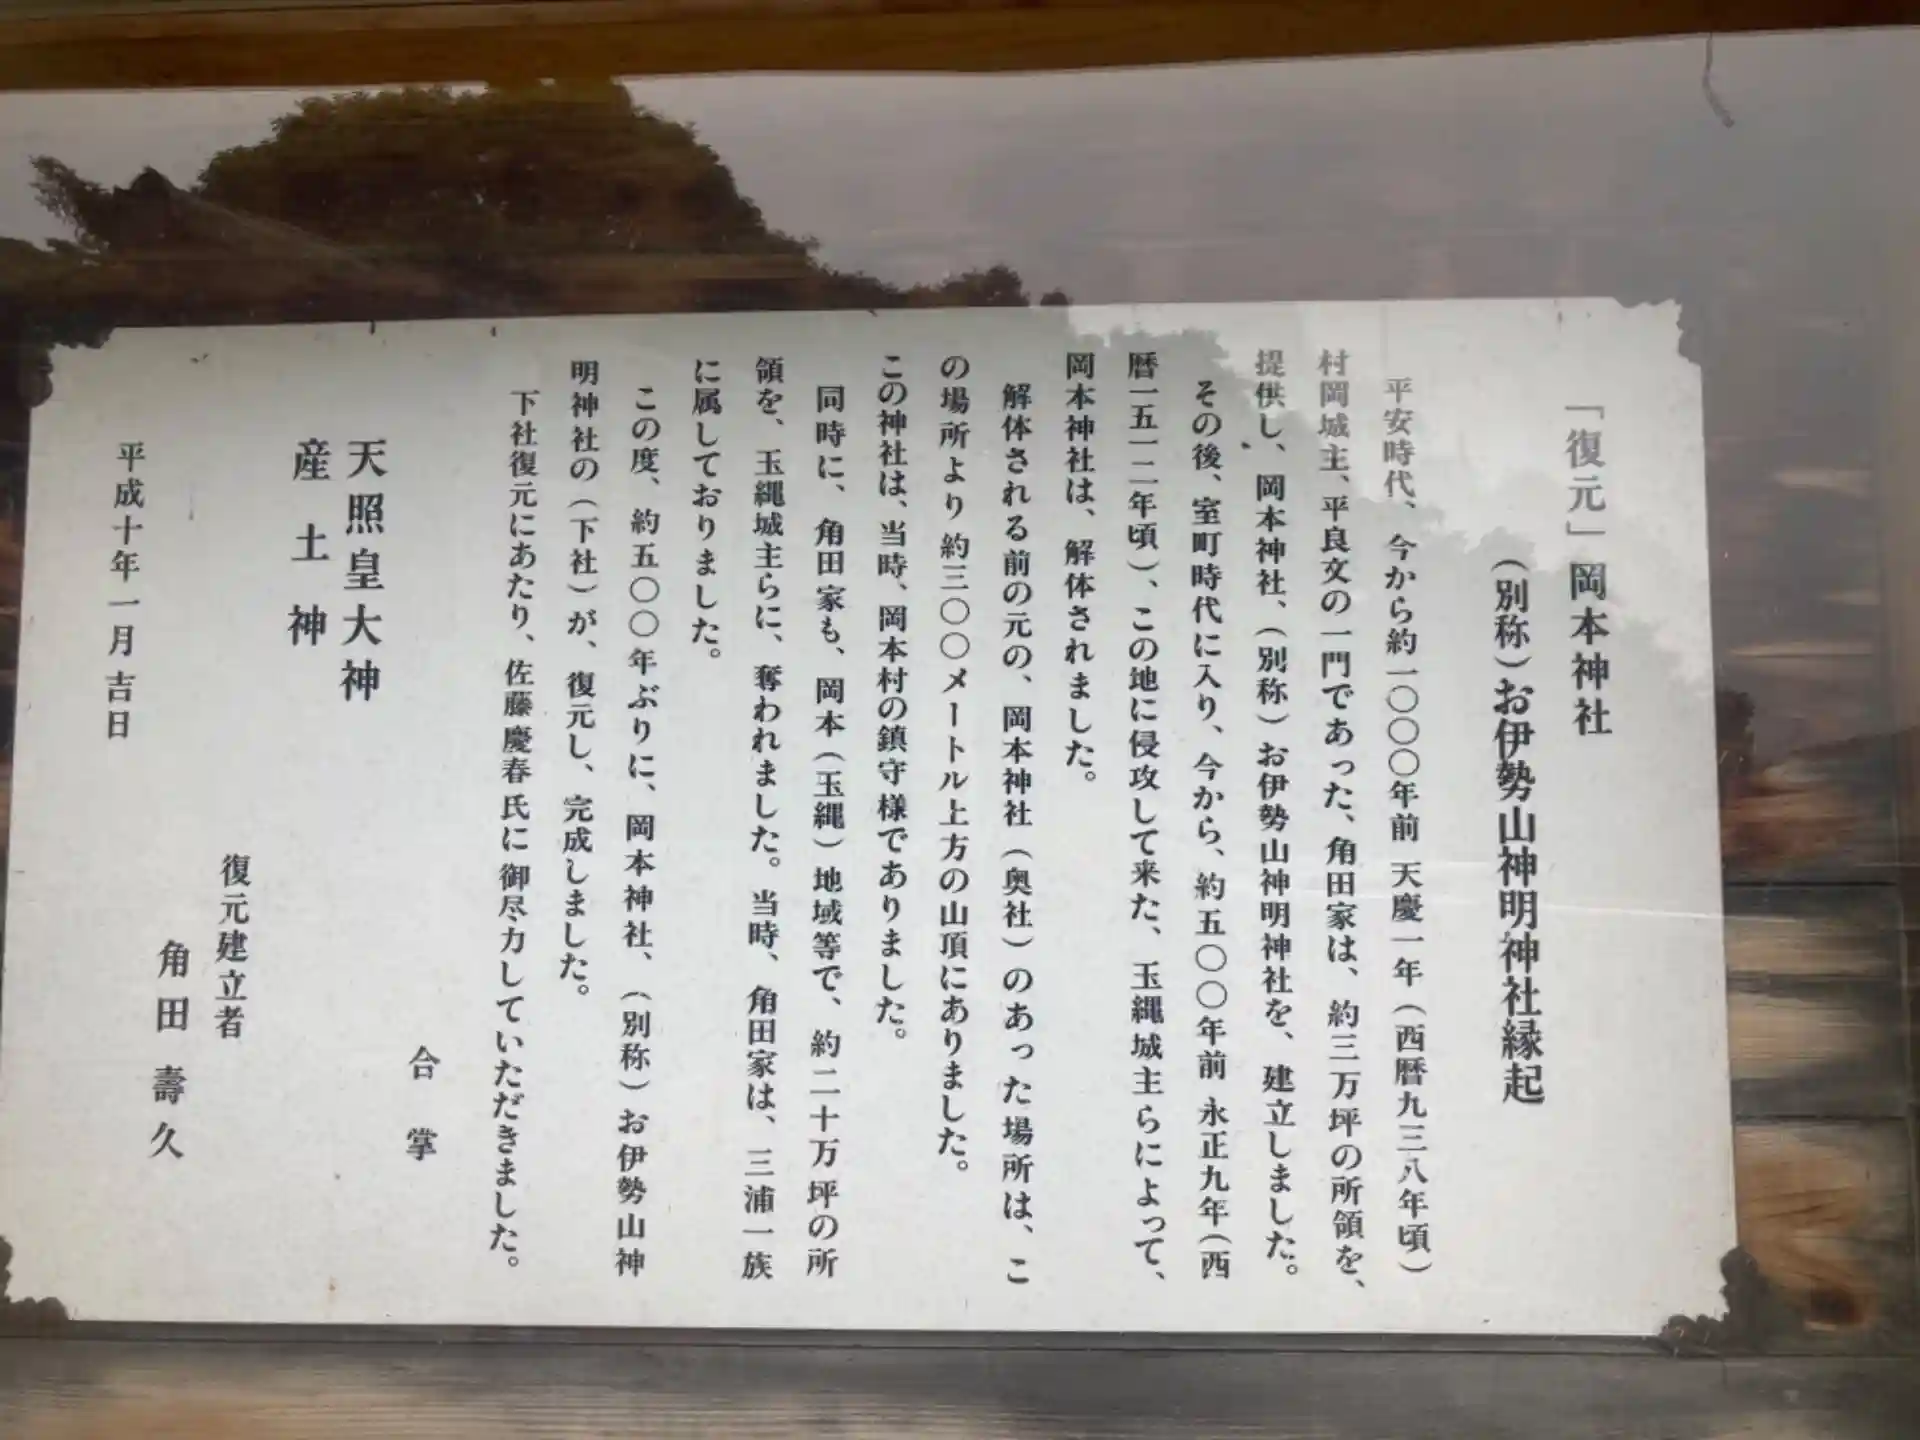 「復元」岡本神社
(別称)お伊勢山神明神社縁起
平安時代、今から約一〇〇〇年前 天慶一年(西暦九三八年頃)
村岡城主、平良文の一門であった、角田家は、約三万坪の所領を、
提供し、岡本神社、(別称)お伊勢山神明神社を、建立しました。
その後、室町時代に入り、今から、約五〇〇年前 永正九年(西
暦一五一二年頃)、この地に侵攻して来た、玉縄城主らによって、
岡本神社は、解体されました。
解体される前の元の、岡本神社(奥社)のあった場所は、こ
の場所より約三〇〇メートル上方の山頂にありました。
この神社は、当時、岡本村の鎮守様でありました。
同時に、角田家も、岡本(玉縄)地域等で、約二十万坪の所
領を、玉縄城主らに、奪われました。当時、角田家は、三浦一族
に属しておりました。
この度、約五〇〇年ぶりに、岡本神社、(別称)お伊勢山神
明神社の(下社)が、復元し、完成しました。
下社復元にあたり、佐藤慶春氏に御尽力していただきました。
合掌
天照皇大神
産土神
復元建立者
角田壽久
平成十年一月吉日